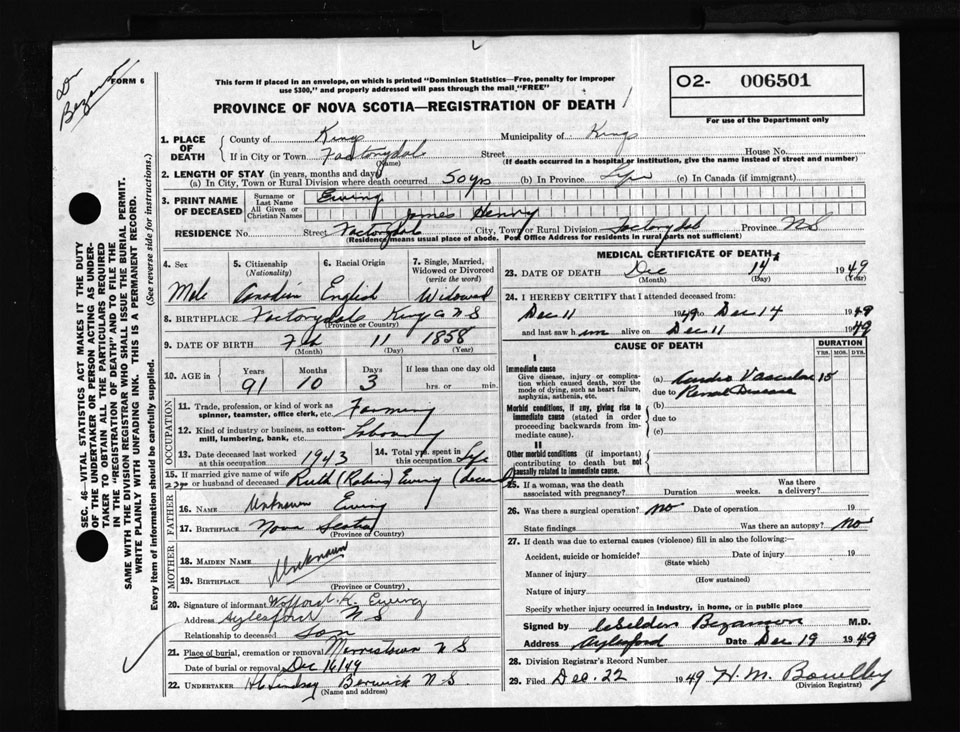 Dr
Bezanson
FORM 6
This form if placed in an envelope, on which is printed "Dominion Statistics—Free, penalty for improper
use $300," and properly addressed will pass through the mail "FREE"
PROVINCE OF NOVA SCOTIA—REGISTRATION OF DEATH
O2- 006501
For use of the Department only
SEC. 46—VITAL STATISTICS ACT MAKES IT THE DUTY
OF THE UNDERTAKER OR PERSON ACTING AS UNDER-
TAKER TO OBTAIN ALL THE PARTICULARS REQUIRED
IN THE "REGISTRATION OF DEATH" AND TO FILE THE
SAME WITH THE DIVISION REGISTRAR WHO SHALL ISSUE THE BURIAL PERMIT.
WRITE PLAINLY WITH UNFADING INK. THIS IS A PERMANENT RECORD.
Every item of information should be carefully supplied. (See reverse side for instructions.)
1. PLACE OF DEATH
County of Kings Municipality of Kings
If in City or Town Factorydale Street House No.
(Name) (If death occurred in a hospital or institution, give the name instead of street and number)
2. LENGTH OF STAY (in years, months and days)
(a) In City, Town or Rural Division where death occurred 50 yrs (b) In Province Life (c) In Canada (if immigrant)
3. PRINT NAME OF DECEASED
Surname or Last Name Ewing
All Given or Christian Names James Henry
RESIDENCE No. Street Factorydale City, Town or Rural Division Factorydale Province N S
(Residence means usual place of abode. Post Office Address for residents in rural parts not sufficient)
4. Sex 5. Citizenship (Nationality) 6. Racial Origin 7. Single, Married, Widowed or Divorced (write the word)
Male Canadian English Widowed
8. BIRTHPLACE Factorydale Kings Co N S
(Province or Country)
9. DATE OF BIRTH Feb 11 1858
(Month) (Day) (Year)
10. AGE in Years Months Days If less than one day old
91 10 3 hrs. or min.
OCCUPATION
11. Trade, profession, or kind of work as spinner, teamster, office clerk, etc. Farming
12. Kind of industry or business, as cotton-mill, lumbering, bank, etc. Laboring
13. Date deceased last worked at this occupation 1943 14. Total yrs. spent in this occupation Life
15. If married give name of wife or husband of deceased Ruth (Robins) Ewing (deceased)
FATHER
16. NAME Unknown Ewing
17. BIRTHPLACE Nova Scotia
(Province or Country)
MOTHER
18. MAIDEN NAME
Unknown
19. BIRTHPLACE
(Province or Country)
20. Signature of informant Wofford K. Ewing
Address Aylesford N S
Relationship to deceased son
21. Place of burial, cremation or removal Morristown N S
Date of burial or removal Dec 16/49
22. UNDERTAKER H C Lindsay Berwick N S
(Name and address)
MEDICAL CERTIFICATE OF DEATH
23. DATE OF DEATH Dec 14 1949
(Month) (Day) (Year)
24. I HEREBY CERTIFY that I attended deceased from
Dec 11 1949 to Dec 14 1949
and last saw him alive on Dec 11 1949
CAUSE OF DEATH DURATION
YRS. MOS. DYS.
I
Immediate cause
Give disease, injury or complication which caused death, NOT the mode of dying, such as heart failure, asphyxia, asthenia, etc.
(a) Cardio Vascular 15
due to Renal Disease
Morbid conditions, if any, giving rise to immediate cause (stated in order proceeding backwards from immediate cause).
(b)
due to
(c)
II
Other morbid conditions (if important) contributing to death but not causally related to immediate cause.
25. If a woman, was the death associated with pregnancy? Duration weeks. Was there a delivery?
26. Was there a surgical operation? No Date of operation 19
State findings Was there an autopsy? No
27. If death was due to external causes (violence) fill in also the following:—
Accident, suicide or homicide? Date of injury 19
(State which)
Manner of injury
(How sustained)
Nature of injury
Specify whether injury occurred in industry, in home, or in public place
Signed by Bezanson M.D.
Address Aylesford Date Dec 19 1949
28. Division Registrar's Record Number
29. Filed Dec. 22 1949 H. M. Bowlby
(Division Registrar)